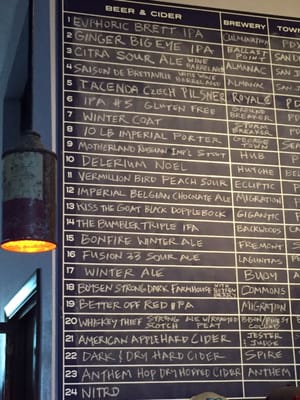 BEER & CIDER BREWERY TOWN
1 EUPHORIC BRETT IPA CULMINATION
2 GINGER BIG EYE IPA BALLAST POINT
3 CITRA SOUR ALE WINE BARRELAGED ALMANAC SAN
4 SAISON DE BRETTAVILLE WHITE WINE BARRELAGED ALMANAC SAN
5 TACENDA CZECH PILSNER ROYALE
6 IPA #5 GLUTEN FREE GROUND BREAKER
7 WINTER COAT BREAKER
8 10 LB IMPERIAL PORTER TOWN
9 MOTHERLAND RUSSIAN IMP'L STOUT HUB
10 DELERIUM NOEL HUYGHE
11 VERMILLION BIRD PEACH SOUR ECLIPTIC
12 IMPERIAL BELGIAN CHOCOLATE ALE MIGRATION
13 KISS THE GOAT BLACK DOPPLEBOCK GIGANTIC
14 THE BUMBLER TRIPLE IPA BACKWOODS
15 BONFIRE WINTER ALE FREMONT
16 FUSION 33 SOUR ALE LAGUNITAS
17 WINTER ALE BUOY
18 BOYSEN STRONG DARK FARMHOUSE WITH COMMONS
19 BETTER OFF RED IPA MIGRATION
20 WHISKEY THIEF STRONG SCOTCH ALE W/ PEAT
21 AMERICAN APPLE HARD CIDER JESTER & JUDGE
22 DARK & DRY HARD CIDER SPIRE
23 ANTHEM HOP DRY HOPPED CIDER ANTHEM
24 NITRO